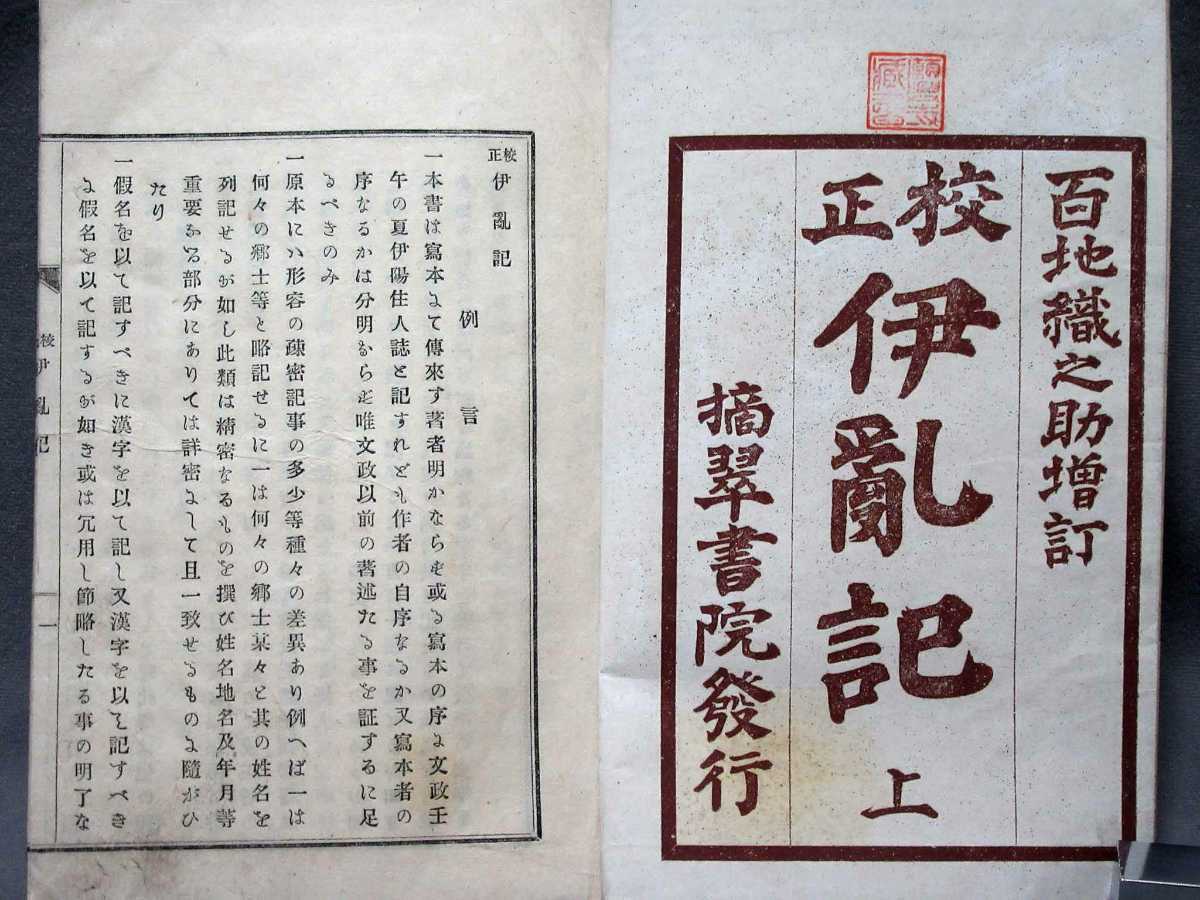 百地織之助增訂
校正
伊亂記
上
摘翠書院發行
校正伊亂記
例言
一本書は寫本よて傳來す著者明かならど或る寫本の序よ文政壬
午の夏伊陽住人誌と記すれども作者の自序なるか又寫本者の
序なるかは分明ならど唯文政以前の著述たる事を証するに足
るべきのみ
一原本にハ形容の疎密記事の多少等種々の差異あり例へば一は
何々の鄕士等と略記せるに一は何々の鄕士某々と其の姓名を
列記せるが如し此類は精密なるものを撰び姓名地名及年月等
重要なる部分にありては詳密よして且一致せるものよ隨がひ
たり
一假名を以て記すべきに漢字を以て記し又漢字を以て記すべき
よ假名を以て記するが如き或は冗用し節略したる事の明了な
伊亂記
一